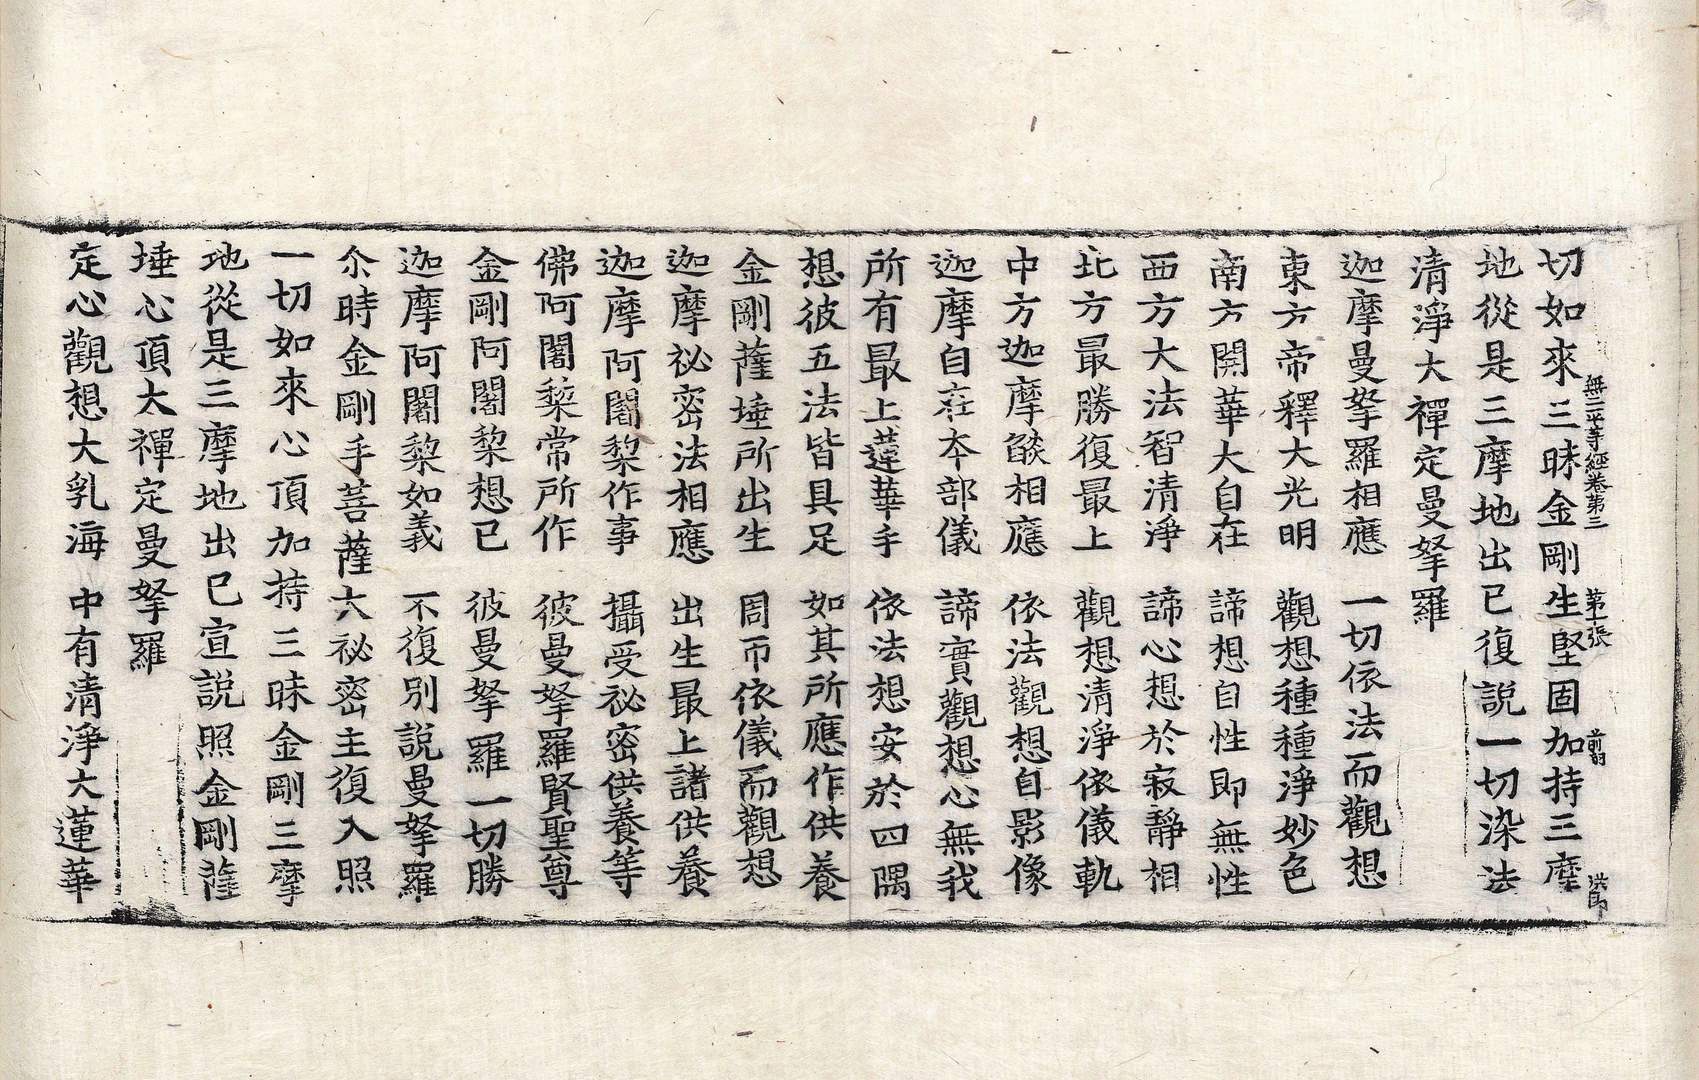 無二平等經卷第三　第十張　前翔　洪即
切如來三昧金剛生堅固加持三摩
地從是三摩地出已復說一切染法
清淨大禪定曼拏羅
迦摩曼拏羅相應　一切依法而觀想
東方帝釋大光明　觀想種種淨妙色
南方開華大自在　諦想自性即無性
西方大法智清淨　諦心想於寂靜相
北方最勝復最上　觀想清淨依儀軌
中方迦摩燄相應　依法觀想自影像
迦摩自在本部儀　諦實觀想心無我
所有最上蓮華手　依法想安於四隅
想彼五法皆具足　如其所應作供養
金剛薩埵所出生　周帀依儀而觀想
迦摩祕密法相應　出生最上諸供養
迦摩阿闍棃作事　攝受祕密供養等
佛阿闍棃常所作　彼曼拏羅賢聖尊
金剛阿闍棃想已　彼曼拏羅一切勝
迦摩阿闍棃如義　不復別說曼拏羅
尒時金剛手菩薩大祕密主復入照
一切如來心頂加持三昧金剛三摩
地從是三摩地出已宣說照金剛薩
埵心頂大禪定曼拏羅
定心觀想大乳海　中有清淨大蓮華